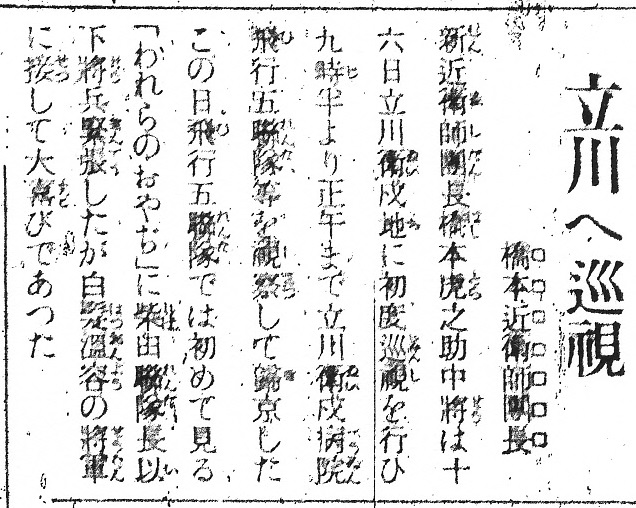 立川へ巡視
橋本近衛師團長
新近衛師團長橋本虎之助中將は十
六日立川衛戍地に初度巡視を行ひ
九時半より正午まで立川衛戍病院
飛行五聯隊等を視察して歸京した
この日飛行五聯隊では初めて見る
「われらのおやぢ」に柴田聯隊長以
下將兵緊張したが白髮溫容の將軍
に接して大喜びであつた